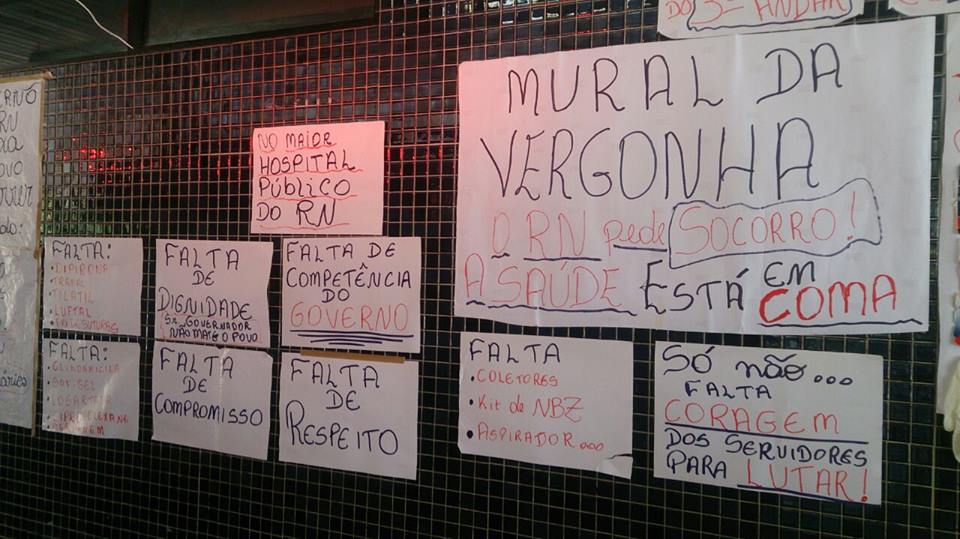 DO 3º ANDAR
MURAL DA
VERGONHA
O RN pede SOCORRO!
A SAÚDE ESTÁ EM
COMA
NO MAIOR
HOSPITAL
PÚBLICO
DO RN
FALTA:
• DIPIRONA
• TRAMAL
• TILATIL
• LUFTAL
FALTA
DE
DIGNIDADE
GOVERNADOR
NÃO MATE O POVO
FALTA DE
COMPETÊNCIA
DO
GOVERNO
FALTA:
FALTA
DE
COMPROMISSO
FALTA
DE
RESPEITO
FALTA
• COLETORES
• Kit de NBZ
• ASPIRADOR...
SÓ NÃO...
FALTA
CORAGEM
DOS SERVIDORES
PARA LUTAR!
RN